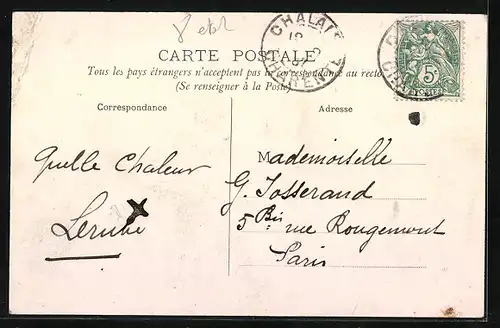 CHALAIS
CHARENTE
CARTE POSTALE
Tous les pays étrangers n'acceptent pas la correspondance au recto
(Se renseigner à la Poste)
Correspondance
Adresse
5c
Quelle Chaleur
Mademoiselle
G. Josserand
5 Bis rue Rougemont
Paris